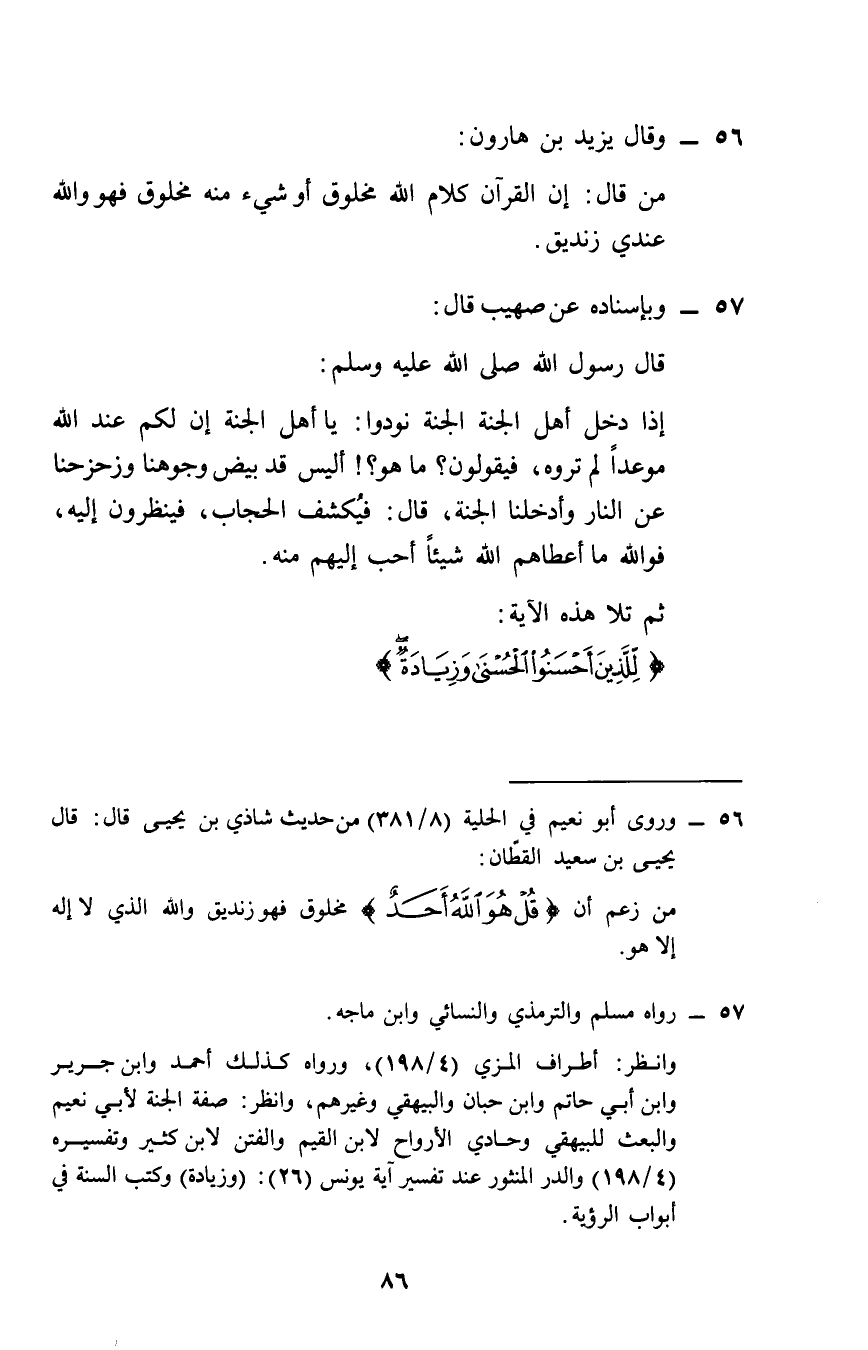 ٥٦ ــ وقال يزيد بن هارون:
من قال: إن القرآن كلام الله مخلوق أو شيء منه مخلوق فهو والله
عندي زنديق.
٥٧ ــ وبإسناده عن صهيب قال:
قال رسول الله صلى الله عليه وسلم:
إذا دخل أهل الجنة الجنة نودوا: يا أهل الجنة إن لكم عند الله
موعداً لم تروه، فيقولون؟ ما هو؟! أليس قد بيض وجوهنا وزحزحنا
عن النار وأدخلنا الجنة، قال: فيُكشف الحجاب، فينظرون إليه،
فوالله ما أعطاهم الله شيئاً أحب إليهم منه.
ثم تلا هذه الآية:
﴿ لِّلَّذِينَ أَحْسَنُوا۟ ٱلْحُسْنَىٰ وَزِيَادَةٌۖ ﴾
٥٦ ــ وروى أبو نعيم في الحلية (٣٨١/٨) من حديث شاذي بن يحيى قال: قال
يحيى بن سعيد القطّان:
من زعم أن ﴿ قُلْ هُوَ ٱللَّهُ أَحَدٌ ﴾ مخلوق فهو زنديق والله الذي لا إله
إلا هو.
٥٧ ــ رواه مسلم والترمذي والنسائي وابن ماجه.
وانظر: أطراف المزي (١٩٨/٤)، ورواه كذلك أحمد وابن جرير
وابن أبي حاتم وابن حبان والبيهقي وغيرهم، وانظر: صفة الجنة لأبي نعيم
والبعث للبيهقي وحادي الأرواح لابن القيم والفتن لابن كثير وتفسيره
(١٩٨/٤) والدر المنثور عند تفسير آية يونس (٢٦): (وزيادة) وكتب السنة في
أبواب الرؤية.
٨٦